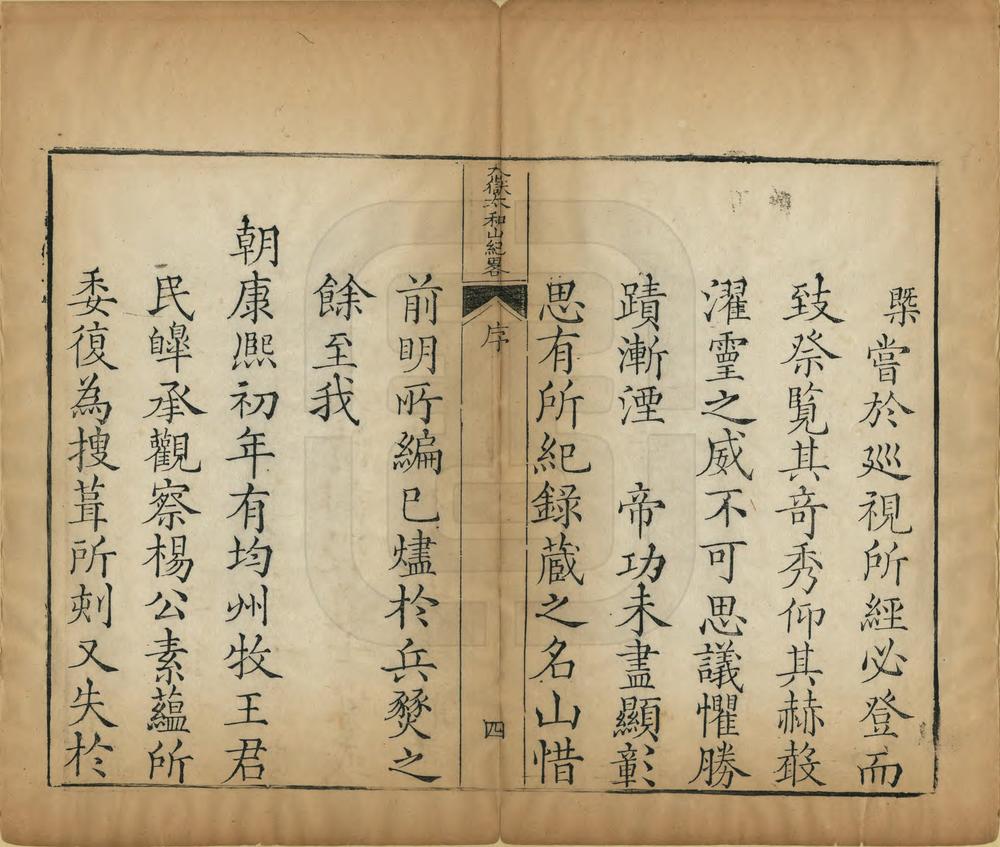 槩嘗於巡視所經必登而
致祭覽其奇秀仰其赫殸
濯靈之威不可思議懼勝
蹟漸湮　帝功未盡顯彰
思有所紀錄蔵之名山惜
大嶽太和山紀畧
序
四
前明所編已燼於兵燹之
餘至我
朝康熙初年有均州牧王君
民皥承觀察楊公素蘊所
委復為搜葺所刻又失於